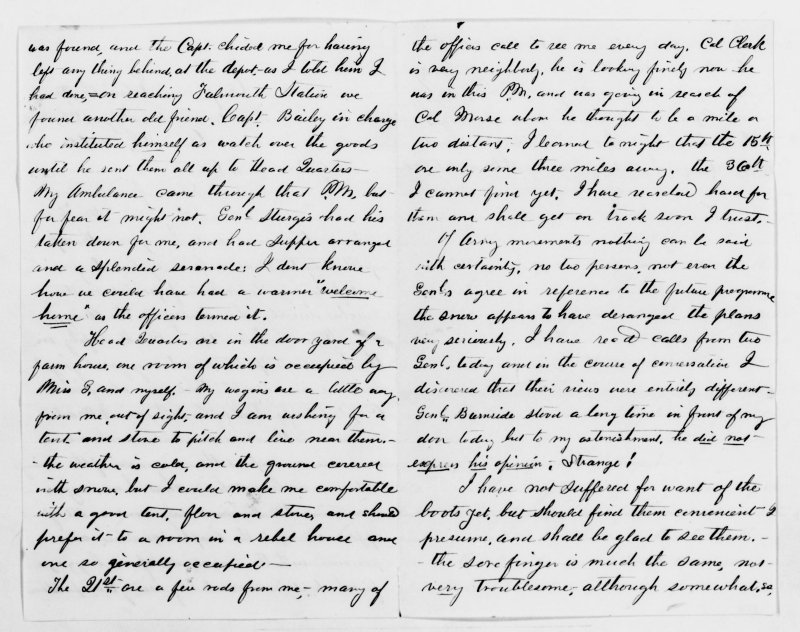 was found, and the Capt. chided me for having
left any thing behind, at the depot – as I told him I
had done, = on reaching Falmouth Station we
found another old friend. Capt. Bailey in charge
who instituted himself as watch over the goods
until he sent them all up to Head Quarters –
My Ambulance came through that P.M. but
for fear it might not. Genl Sturgis had his
taken down for me, and had supper arranged
and a splendid seranade; I dont know
how we could have had a warmer "welcome
home" as the officers termed it.
Head Quarters are in the door yard of a
farm house, one room of which is occupied by
Miss G. and myself. – My wagons are a little way
from me, out of sight, and I am wishing for a
tent and stove to pitch and live near them. –
– the weather is cold, and the ground covered
with snow, but I could make me comfortable
with a good tent, floor and stove, and should
prefer it to a room in a rebel house and
one so generally occupied –
The 21st are a few rods from me, – many of
the officers call to see me every day. Col Clark
is very neighborly, he is looking finely now he
was in this P.M. and was going in search of
Col Morse whom he thought to be a mile or
two distant. I learned to night that the 15th
are only some three miles away. the 36th
I cannot find yet. I have searched hard for
them and shall get on track soon I trust. –
Of Army movements nothing can be said
with certainty, no two persons, not even the
Genl's agree in reference to the future programme
the snow appears to have deranged the plans
very seriously. I have recd calls from two
Genl. today and in the course of conversation I
discovered that their views were entirely different –
Genl. Burnside stood a long time in front of my
door today but to my astonishment, he did not
express his opinion, Strange!
I have not suffered for want of the
boots yet, but should find them convenient I
presume, and shall be glad to see them. –
– the sore finger is much the same, not
very troublesome, although somewhat so,